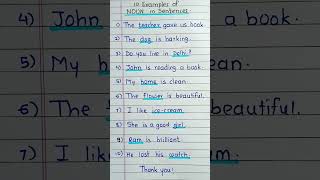 10 Examples of
NOUN in Sentences
1) The teacher gave us book.
2) The dog is barking.
3) Do you live in Delhi?
4) John is reading a book.
5) My home is clean.
6) The flower is beautiful.
7) I like ice-cream.
8) She is a good girl.
9) Ram is brilliant.
10) He lost his watch.
Thank you!